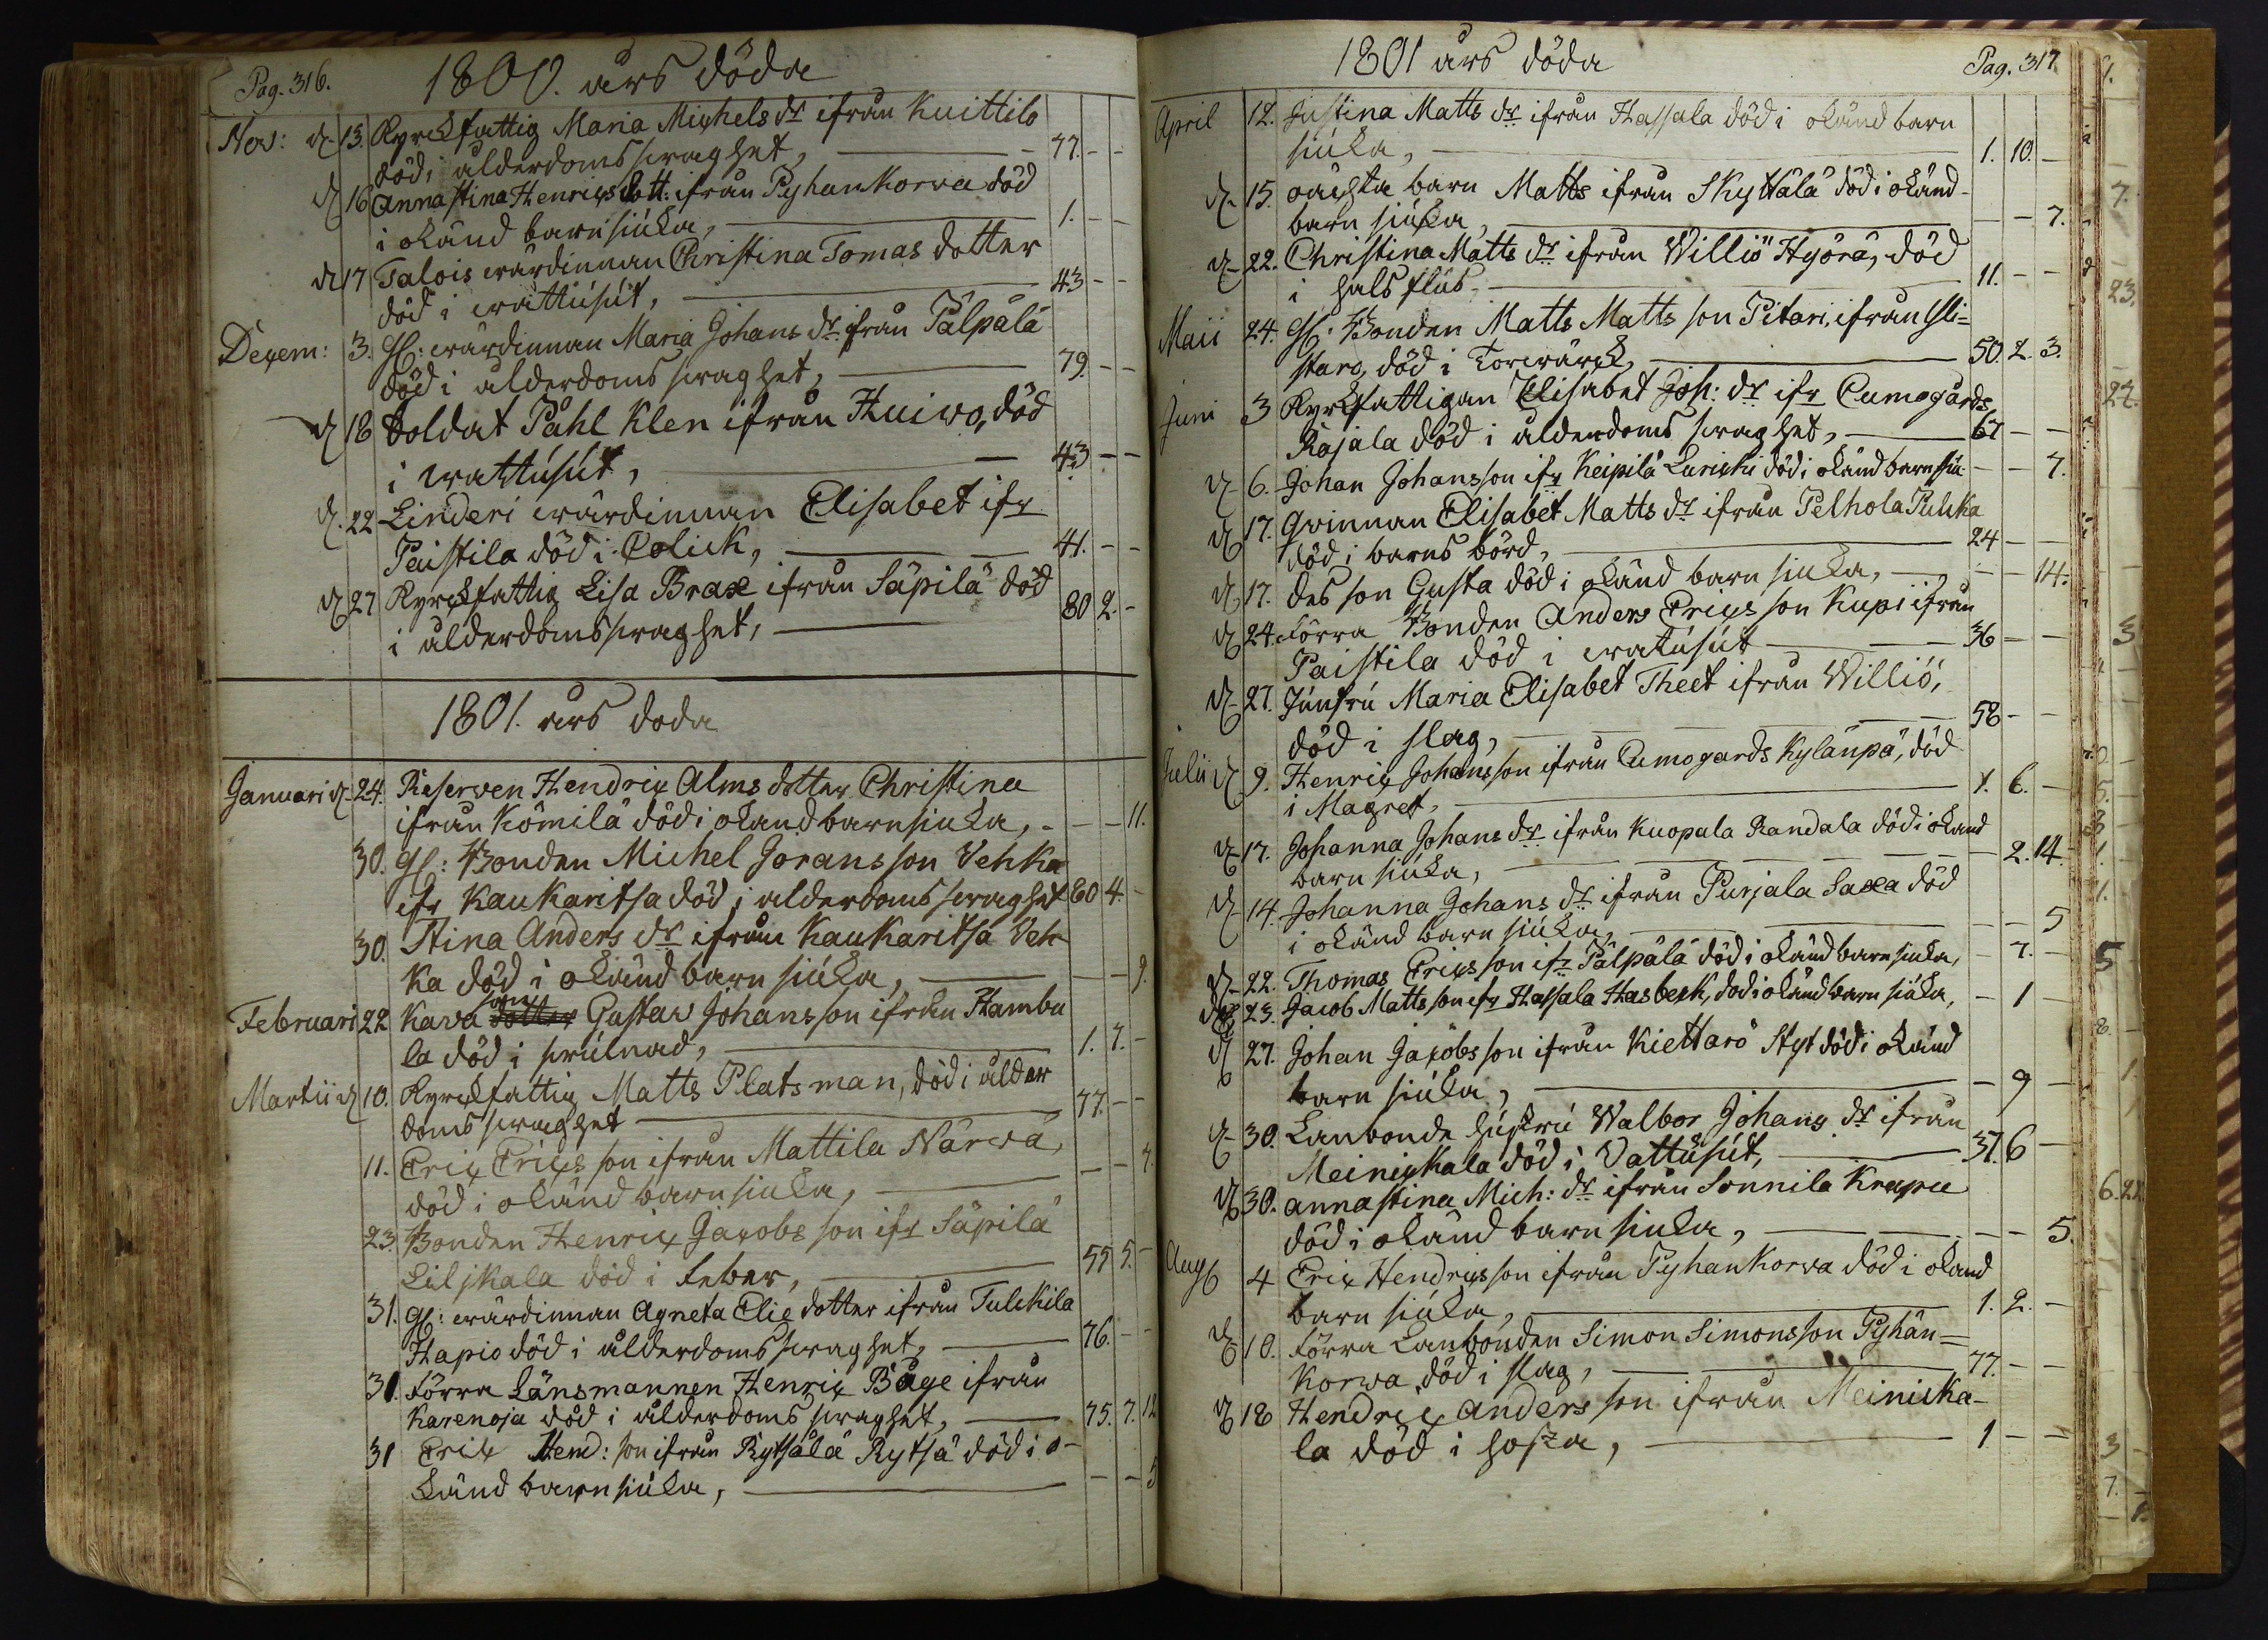 Pag. 316.
1800. års döda
Nov: d. 13. Kyrckfattig Maria Michels dr ifrån Kuittilo
död i ålderdoms swaghet, 77. - -
d 16 Anna Stina Henrics dott: ifrån Pyhankorwa död
i okänd barnsiúka, 1. - -
d 17 Talois wärdinnan Christina Tomas dotter
död i wattúsút, 43 - -
Decem: 3. Gl: wärdinnan Maria Johans dr ifrån Pälpälä
död i ålderdoms swaghet, 79. - -
d 18 Soldat Påhl Klen ifrån Huiwo, död
i wattúsút, 43 - -
d. 22 Linderi wärdinnan Elisabet ifr
Paistila död i Colick, 41. - -
d 27 Kyrckfattig Lisa Brax ifrån Säpilä död
i ålderdoms swaghet, 80 2. -
1801. års doda
Januari d. 24. Reserven Hendric Alms dotter Christina
ifrån Kömilä död i okand barnsiuka, - - 11.
30. Gl: Bonden Michel Göransson Vehka
ifr Kaukaritsa död i alderdoms swaghet 60 4. -
30. Stina Anders dr ifrån Kaukaritsa Veh
ka död i okänd barn siúka, - - 9.
Februari 22 Kava son dotter Gustav Johansson ifrån Hambu
la död i swúlnad, 1. 7. -
Martii d 10. Kyrckfattig Matts Platsman, död i ålder
doms swaghet 77. - -
11. Eric Erics son ifrån Mattila Närwä,
död i okänd barn siuka, - - 7.
23. Bonden Henric Jacobs son ifr Säpilä
Liljkala död i feber, 55 5. -
31. Gl: wärdinnan Agneta Elie dotter ifrån Tulckila
Hapio död i ålderdoms swaghet, 76. - -
31. Förra Länsmannen Henric Båge ifrån
Karenoja död i ålderdoms swaghet, 75. 7. 12
31 Eric Hend: son ifrån Rytsälä Rytsä död i o-
känd barn siúka, - - 5
1801 års döda
Pag. 317
April 12. Justina Matts dr ifrån Hassala död i okänd barn
siúka, 1. 10. -
d. 15. oäckta barn Matts ifrån Skyttälä död i okänd-
barn siúka, - - 7.
d. 22. Christina Matts dr ifrån Williö Hyörä, död
i hals flús. 11. - -
Maii 24. Gl. Bonden Matts Matts son Pitari, ifrån Yli=
staro, död i Torrwärck, 50. 2. 3.
Juni 3 Kyrckfattigan Elisabet Joh: dr ifr Cumogårds
Rajala död i ålderdoms swaghet, 67 - -
d. 6. Johan Johansson ifr Keipilä Luricki död i okänd barn siú. - - 7.
d 17. Qvinnan Elisabet Matts dr ifrån Pelhola Pulcka
död i barns börd, 24 - -
d 17. des son Gusta död i okänd barn siuka, - - 14.
d 24. Förra Bonden Anders Erics son Kupi ifrån
Paistila död i watúsút 36 - -
d. 27. Júnfrú Maria Elisabet Theet ifrån Williö,
död i slag, 58 - -
Julii d. 9. Henric Johansson ifrån Cumogards Kylänpä, död
i Magref, 1. 6. -
d 17. Johanna Johans dr ifrån Kuopala Randala död i okand
barn siúka, - 2. 14.
d. 14. Johanna Johans dr ifrån Purjala Saxa död
i okänd barn siúka, - - 5
d. 22. Thomas Erics son ifr Pälpälä död i okänd barn siúka, - 7. -
d 23. Jacob Matts son ifr Hassala Hasbeck, död i okänd barn siúka, - 1 -
d 27. Johan Jacobs son ifrån Kiettarö Styt död i okänd
barn siúka, - 9 -
d. 30. Lanbonde hústrú Walbor Johans dr ifrån
Meinickala död i Vattúsút, 37. 6 -
d 30. Anna Stina Mich: dr ifrån Sonnila Krapu
död i okänd barn siuka, - - 5.
Aug 4 Eric Hendricsson ifrån Pyhankorwa död i okand
barn siúka, 1. 2. -
d 10. Förra Lanbonden Simon Simonsson Pyhän=
korwa, död i slag, 77. - -
d 18 Hendric Anders son ifrån Meinicka-
la död i hosta, 1 - -